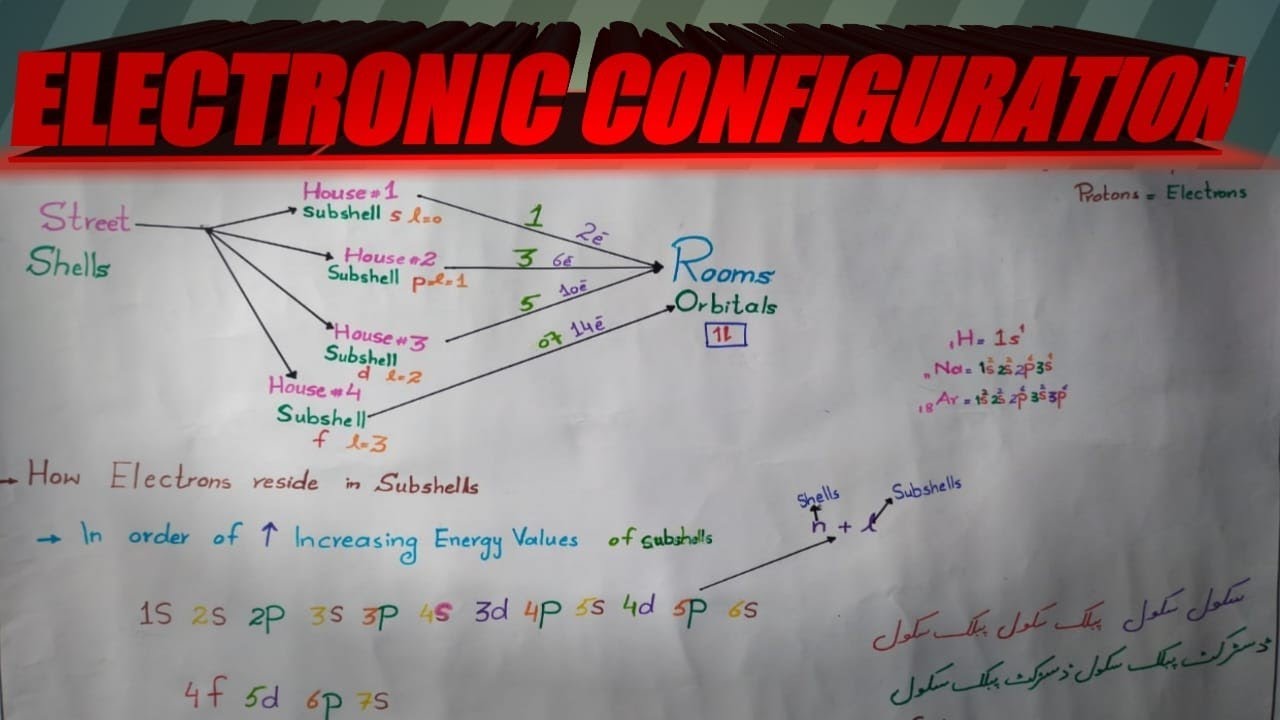 ELECTRONIC CONFIGURATION
Protons = Electrons
Street
Shells
House # 1
Subshell s l=0
House # 2
Subshell p=l=1
House # 3
Subshell
d l=2
House # 4
Subshell
f l=3
1 2ē
3 6ē
5 10ē
07 14ē
Rooms
Orbitals
1L
₁H = 1s¹
Na = 1s² 2s² 2p⁶ 3s¹
₁₈Ar = 1s² 2s² 2p⁶ 3s² 3p⁶
→ How Electrons reside in Subshells
→ In order of ↑ Increasing Energy Values of subshells
Shells Subshells
n + l
1s 2s 2p 3s 3p 4s 3d 4p 5s 4d 5p 6s
4f 5d 6p 7s
سکول سکول پبلک سکول پبلک سکول
ڈسٹرکٹ پبلک سکول ڈسٹرکٹ پبلک سکول